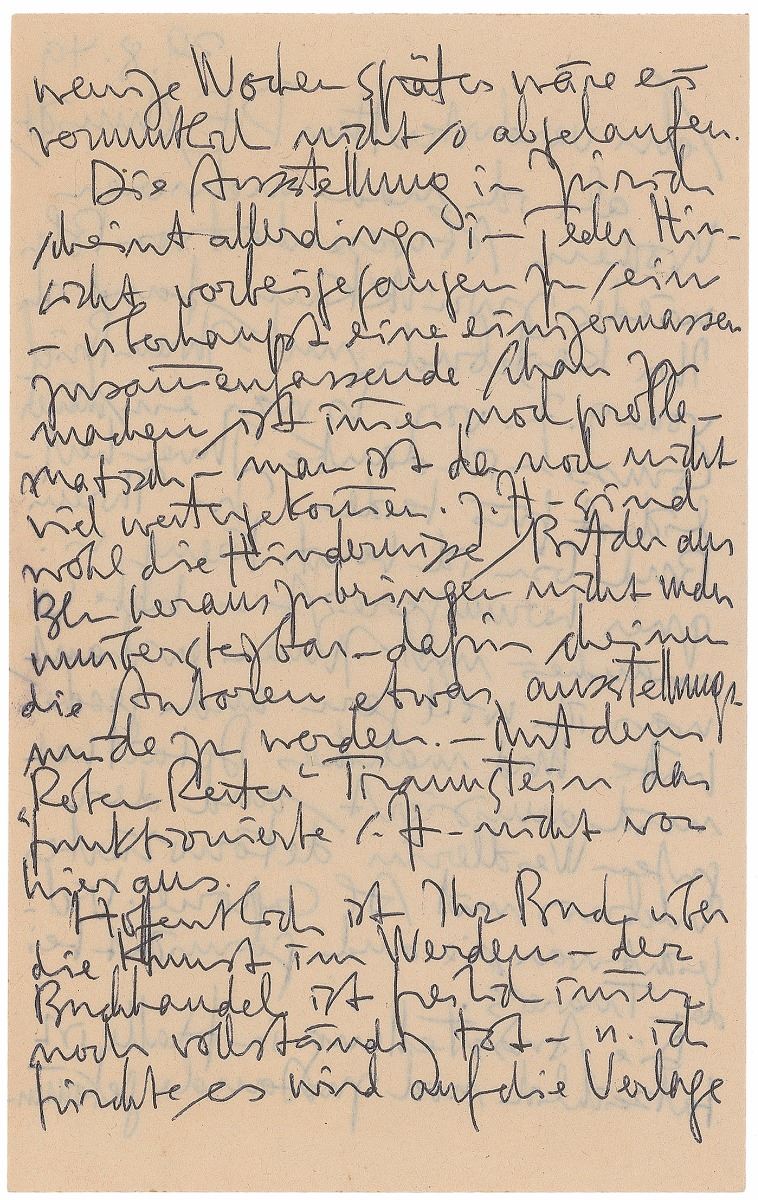 wenige Wochen später wäre es
vermutlich nicht so abgelaufen.
Die Ausstellung in Zürich
scheint allerdings in jeder Hin-
sicht vorbeigegangen zu sein
– überhaupt eine einigermassen
zusam̅enfassende Schau zu
machen ist im̅er noch proble-
matisch – man ist da noch nicht
viel weitergekom̅en. z. Zt. sind
wohl die Hindernisse, Bilder aus
Bln herauszubringen nicht mehr
unübersteigbar – dafür scheinen
die Autoren etwas ausstellungs-
müde zu werden. – Mit dem
"Roten Reiter" Traunstein das
funktionierte s. Zt. nicht von
hier aus.
Hoffentlich ist Ihr Buch über
die Kunst im Werden – der
Buchhandel ist freilich im̅er
noch vollständig tot – u. ich
fürchte, es wird auf die Verlage